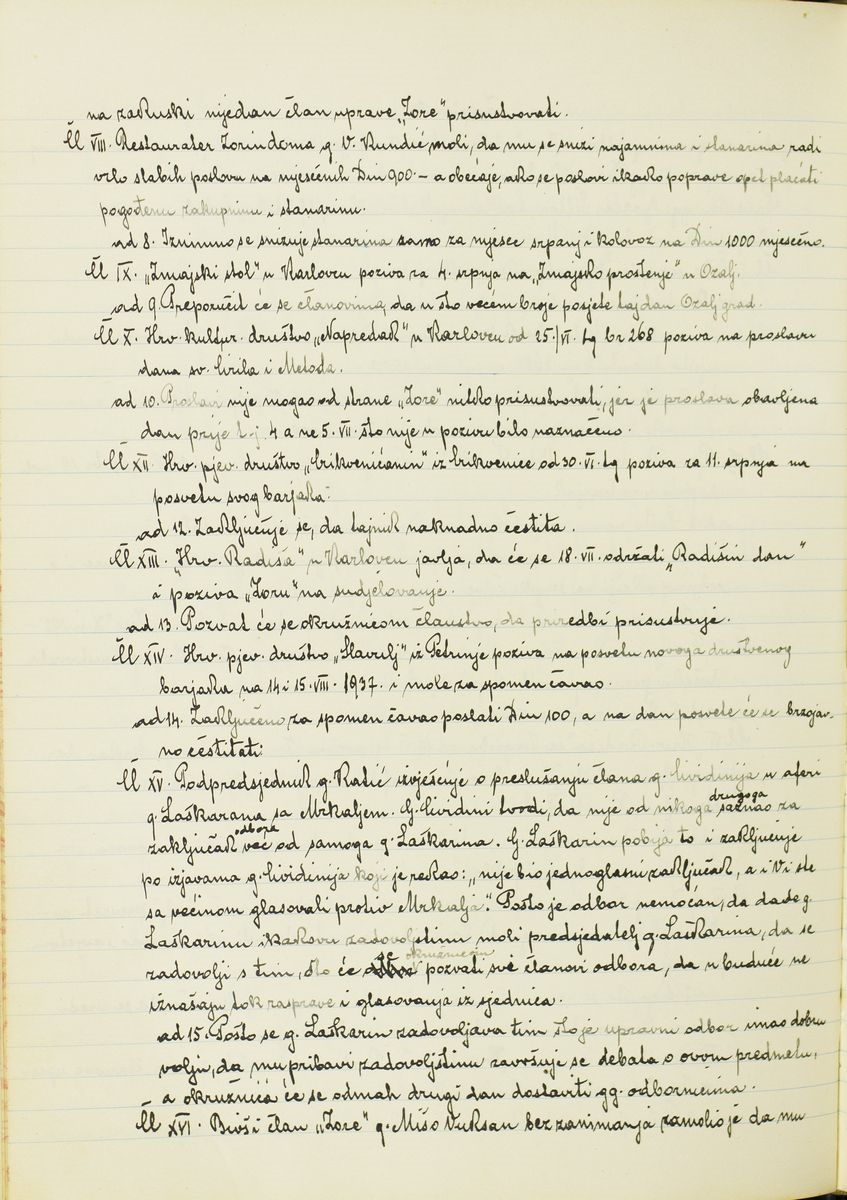 na zakuski nijedan član uprave „Zore“ prisustvovati.
Čl VIII. Restaurater Zorin doma g. V. Kundić moli, da mu se snizi najamnina i stanarina radi
vrlo slabih poslova na mjesečnih Din 900.– a obećaje, ako se poslovi ikako poprave opet plaćati
pogođenu zakupninu i stanarinu.
ad 8. Iznimno se snizuje stanarina samo za mjesec srpanj i kolovoz na Din 1000 mjesečno.
Čl IX. „Zmajski stol“ u Karlovcu poziva za 4. srpnja na „Zmajsko proštenje“ u Ozalj.
ad 9. Preporučit će se članovima, da u što većem broje posjete taj dan Ozalj grad.
Čl X. Hrv. kultur. društvo „Napredak“ u Karlovcu od 25./VI. tg br 268 poziva na proslavu
dana sv. Ćirila i Metoda.
ad 10. Proslavi nije mogao od strane „Zore“ nitko prisustvovati, jer je proslava obavljena
dan prije t.j. 4 a ne 5. VII. što nije u pozivu bilo naznačeno.
Čl XII. Hrv. pjev. društvo „Crikveničanin“ iz Crikvenice od 30. VI. tg poziva za 11. srpnja na
posvetu svog barjaka.
ad 12. Zaključuje se, da tajnik naknadno čestita.
Čl XIII. „Hrv. Radiša“ u Karlovcu javlja, da će se 18. VII. održati „Radišin dan“
i poziva „Zoru“ na sudjelovanje.
ad 13. Pozvat će se okružnicom članstvo, da priredbi prisustvuje.
Čl XIV. Hrv. pjev. društvo „Slavulj“ iz Petrinje poziva na posvetu novoga društvenog
barjaka na 14 i 15. VIII. 1937. i mole za spomen čavao.
ad 14. Zaključeno, za spomen čavao poslati Din 100, a na dan posvete će se brzojav-
no čestitati.
Čl XV. Podpredsjednik g. Katić izvješćuje o preslušanju člana g. Cividinija u aferi
g. Laškarana sa Mrkaljem. G. Cividini tvrdi, da nije od nikoga drugoga saznao za
zaključak odbora već od samoga g. Laškarina. G. Laškarin pobija to i zaključuje
po izjavama g. Cividinija koji je rekao: „nije bio jednoglasni zaključak, a i Vi ste
sa većinom glasovali protiv Mrkalja.“ Pošto je odbor nemoćan, da dade g.
Laškarinu ikakovu zadovoljštinu moli predsjedatelj g. Laškarina, da se
zadovolji s tim, što će se okružnicom pozvati svi članovi odbora, da u buduće ne
iznašaju tok rasprave i glasovanja iz sjednica.
ad 15. Pošto se g. Laškarin zadovoljava tim što je upravni odbor imao dobru
volju, da mu pribavi zadovoljštinu završuje se debata o ovom predmetu,
a okružnica će se odmah drugi dan dostaviti gg. odbornicima.
Čl XVI. Bivši član „Zore“ g. Mišo Vuksan bez zanimanja zamolio je da mu